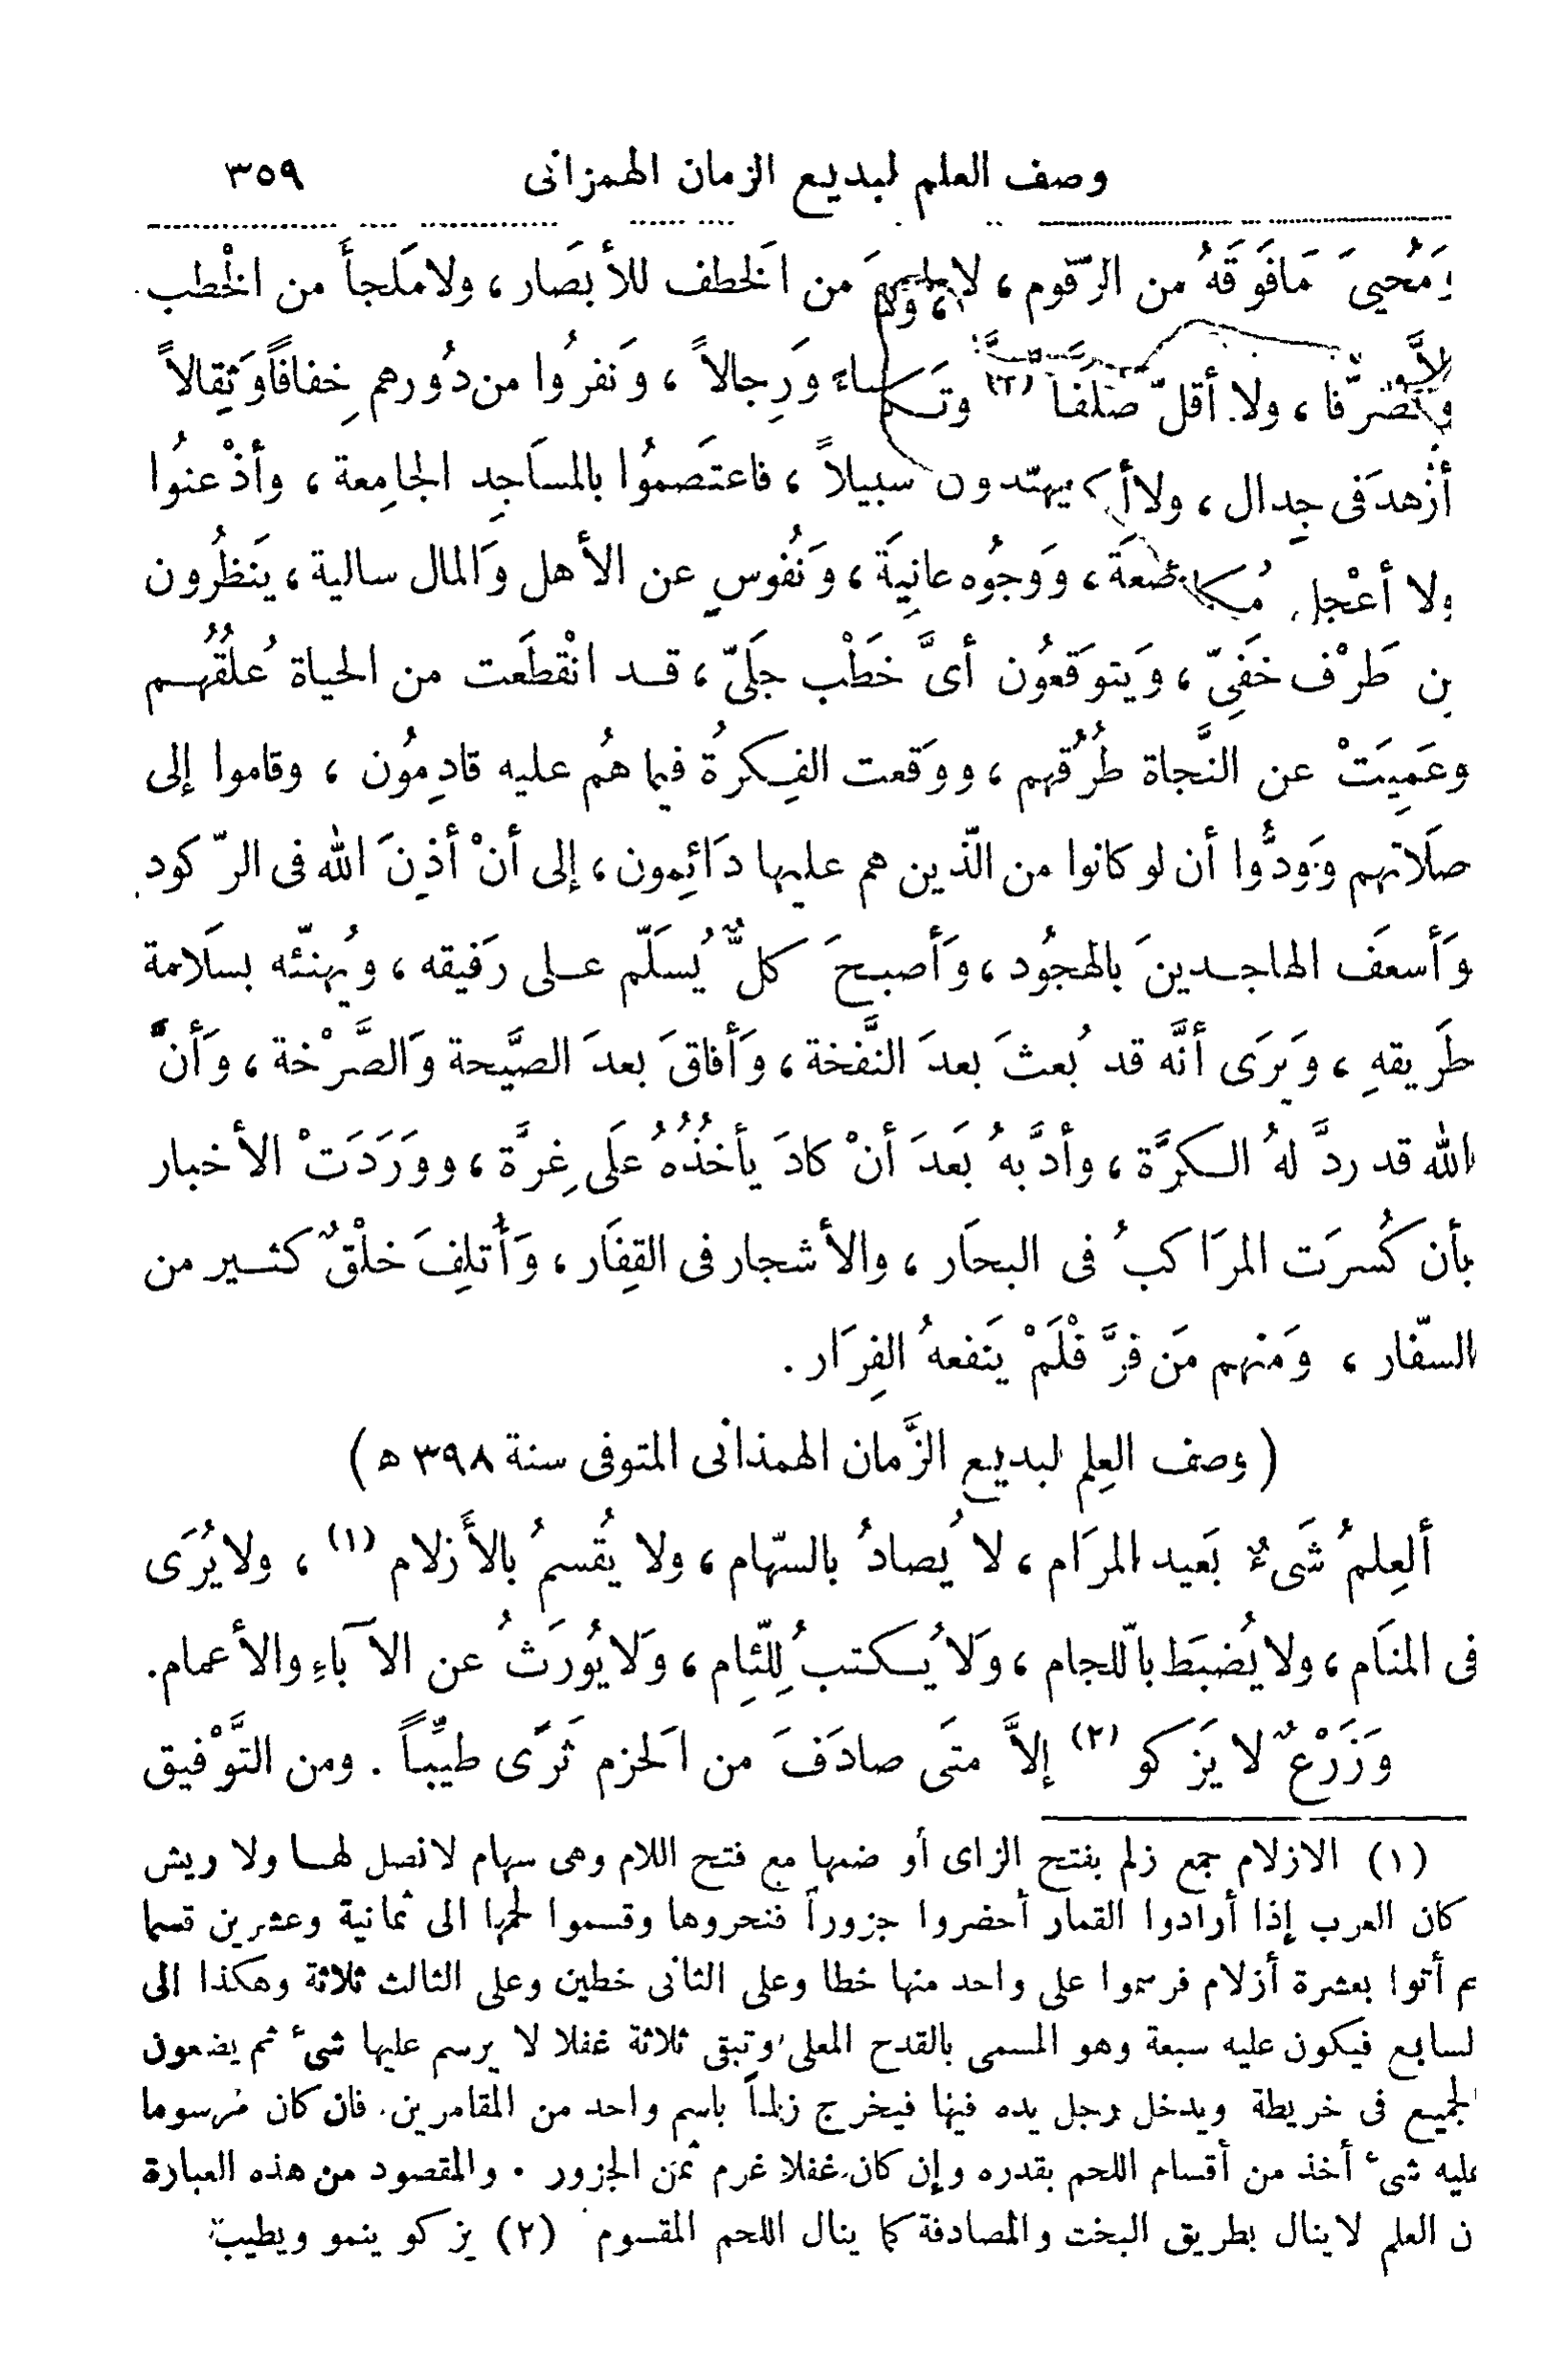 وصف العلم لبديع الزمان الهمزانى ٣٥٩
وَمُحيىَ مَافَوقَهُ من الرّقوم ، لا من الَخطف للأبصَار ، ولامَلجأَ من الخْطب
ولا أقلّ صَلَفاً (٣) وَرِجالاً ، وَنفرُوا من دُورهم خِفافًاوَثِقالاً
أزْهدَ فى جِدال ، يهتدون سبيلاً ، فاعتَصموُا بالمساَجِد الجامِعة ، وأذْعنوُا
ولا أعْجل ، وَوَجوُه عانِيَة ، وَنُفوسٍ عن الأهل وَالمال سالية ، يَنظرُون
من طَرْف خَفِىّ ، وَيتوَقعُون أىَّ خَطْب جلَىّ ، قد انْقطَعت من الحياة عُلَقُهم
وعَمِيَتْ عن النَّجاة طُرُقهم ، ووَقعت الفِكرةُ فيما هُم عليه قادِموُن ، وقاموا إلى
صلَاتهم وَودُّوا أن لو كانوا من الّذين هم عليها دَائِمون ، إلى أنْ أذِنَ الله فى الرّكود
وَأسعَف الهاجدينَ بالهجوُد ، وَأصبحَ كلٌّ يُسلَّم على رَفيقه ، ويُهنّئه بسلَامة
طَريقهِ ، وَيرَى أنَّه قد بُعثَ بعدَ النَّفخة ، وَأفاقَ بعدَ الصَّيحة وَالصَّرْخة ، وَأنَّ
الله قد ردَّ لهُ الكرَّة ، وأدَّبهُ بَعدَ أنْ كادَ يأخذُهُ علَى غِرَّة ، ووَرَدَتْ الأخبار
بأن كُسرَت المرَاكبُ فى البحاَر ، والأشجار فى القِفَار ، وَأُتلِفَ خلْقٌ كثير من
السفّار ، وَمنهم مَن فرَّ فْلَمْ يَنفعهُ الفِرَار .
( وصف العِلم لبديع الزَّمان الهمذانى المتوفى سنة ٣٩٨ ه )
ألعِلمُ شَىءٌ بَعيد المرَام ، لا يُصادُ بالسّهام ، ولا يُقسمُ بالأَزلام (١) ، ولايُرَى
فى المنَام ، ولا يُضبَط باّللجام ، وَلا يُكتبُ لِلّئِام ، وَلا يُورَثُ عن الآباءِ والأعمام .
وَزَرْعٌ لا يَزكو (٢) إلاَّ متَى صادَفَ من الَحزم ثَرًى طيِّباً . ومن التَّوْفيق
(١) الازلام جمع زلم بفتح الزاى أو ضمها مع فتح اللام وهى سهام لانصل لها ولا ريش
كان العرب إذا أرادوا القمار أحضروا جزوراً فنحروها وقسموا لحمها الى ثمانية وعشرين قسما
ثم أتوا بعشرة أزلام فرسموا على واحد منها خطا وعلى الثانى خطين وعلى الثالث ثلاثة وهكذا الى
لسابع فيكون عليه سبعة وهو المسمى بالقدح المعلى وتبقى ثلاثة غفلا لا يرسم عليها شىء ثم يضعون
الجميع فى خريطة ويدخل رجل يده فيها فيخرج زلماً باسم واحد من المقامرين. فان كان مرسوما
عليه شىء أخذ من أقسام اللحم بقدره وإن كان غفلا غرم ثمن الجزور . والمقصود من هذه العبارة
ن العلم لاينال بطريق البخت والمصادفة كما ينال اللحم المقسوم (٢) يزكو ينمو ويطيب